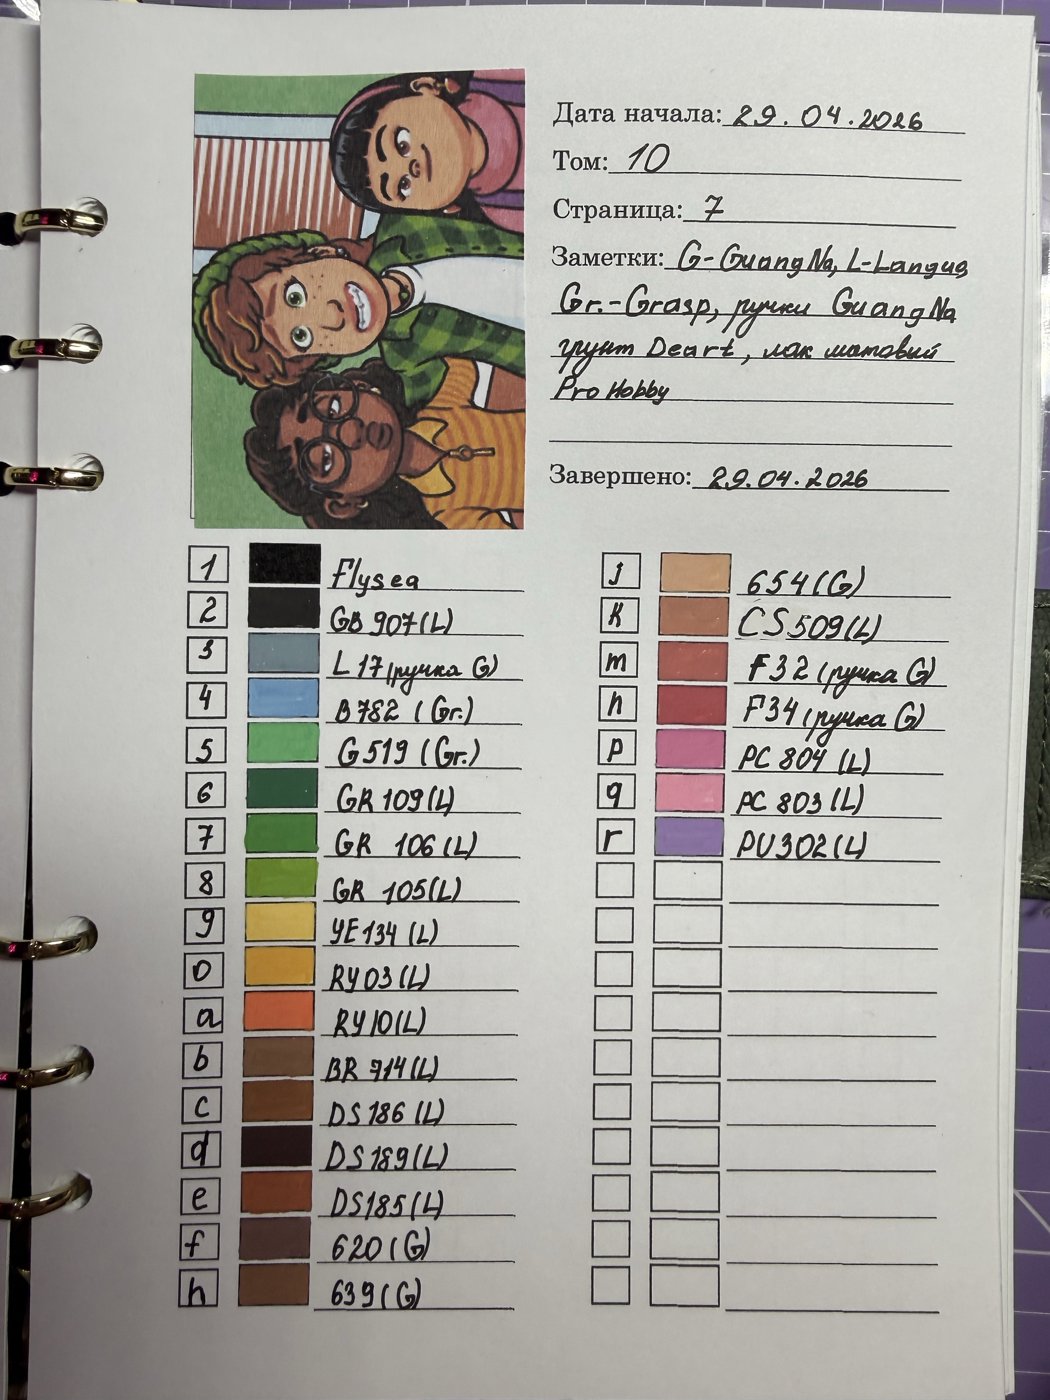 Дата начала: 29.04.2026
Том: 10
Страница: 7
Заметки: G-GuangNa, L-Langus
Gr.-Grasp, ручки GuangNa
грунт Deart, лак матовый
Pro Hobby
Завершено: 29.04.2026
1 Flysea
2 GB 907(L)
3 L17(ручка G)
4 B782 (Gr.)
5 G519 (Gr.)
6 GR 109(L)
7 GR 106(L)
8 GR 105(L)
9 YE134 (L)
0 RY03(L)
a RY10(L)
b BR 714(L)
c DS186 (L)
d DS189(L)
e DS185(L)
f 620(G)
h 639(G)
j 654(G)
k CS509(L)
m F32(ручка G)
n F34(ручка G)
p PC 804 (L)
q PC 803(L)
r PU302(L)